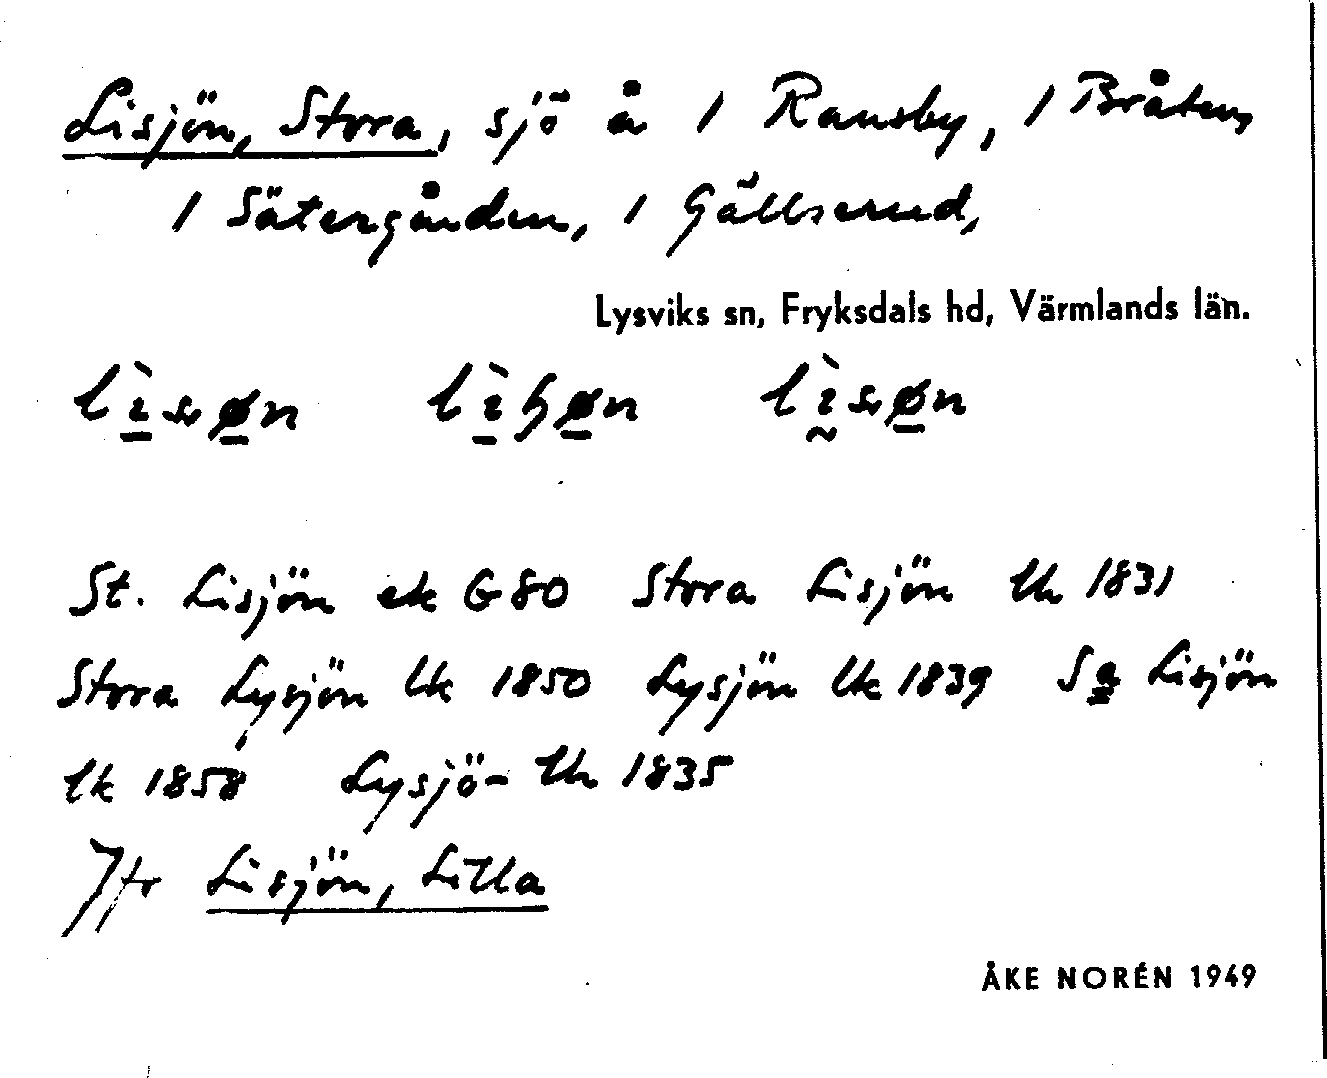 Lisjön, Stora, sjö å 1 Ransby, 1 Bråten,
1 Sätergården, 1 Gällserud,
Lysviks sn, Fryksdals hd, Värmlands län.
St. Lisjön ek G 80 Stora Lisjön lk 1831
Stora Lysjön lk 1850 Lysjön lk 1839 Sa Lisjön
lk 1858 Lysjö- lk 1835
Jfr Lisjön, Lilla
ÅKE NORÉN 1949